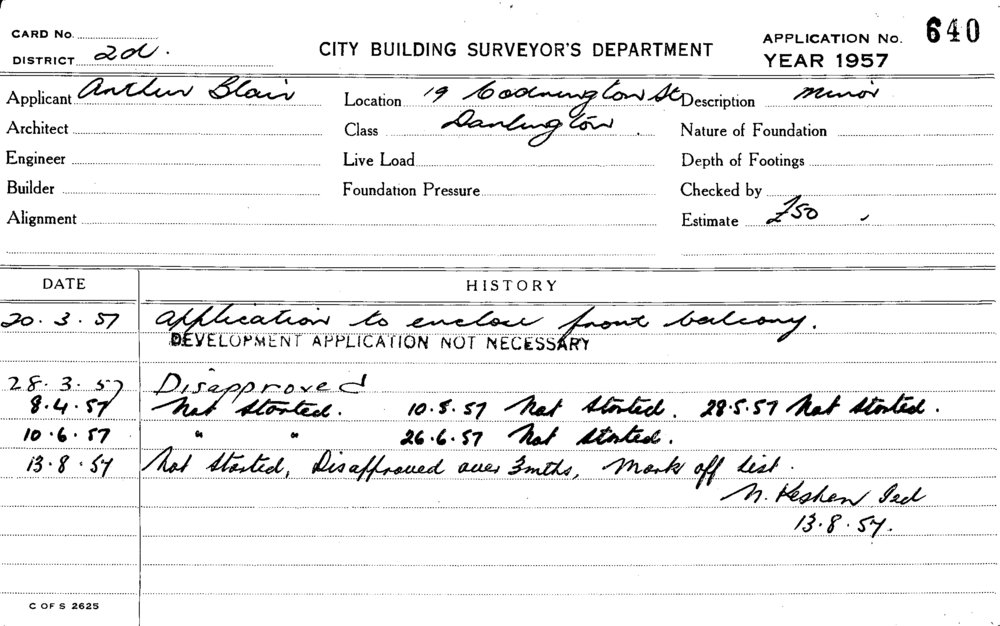 CARD No.
DISTRICT 2d.
CITY BUILDING SURVEYOR'S DEPARTMENT
APPLICATION No. 640
YEAR 1957
Applicant Arthur Blair Location 19 Codrington St Description minor
Architect Class Darlington Nature of Foundation
Engineer Live Load Depth of Footings
Builder Foundation Pressure Checked by
Alignment Estimate £50
DATE HISTORY
20.3.57 Application to enclose front balcony.
DEVELOPMENT APPLICATION NOT NECESSARY
28.3.57 Disapproved
8.4.57 Not Started. 10.5.57 Not Started. 28.5.57 Not Started.
10.6.57 " " 26.6.57 Not Started.
13.8.57 Not Started, Disapproved over 3mths, Mark off list.
N.
13.8.57.
C OF S 2625